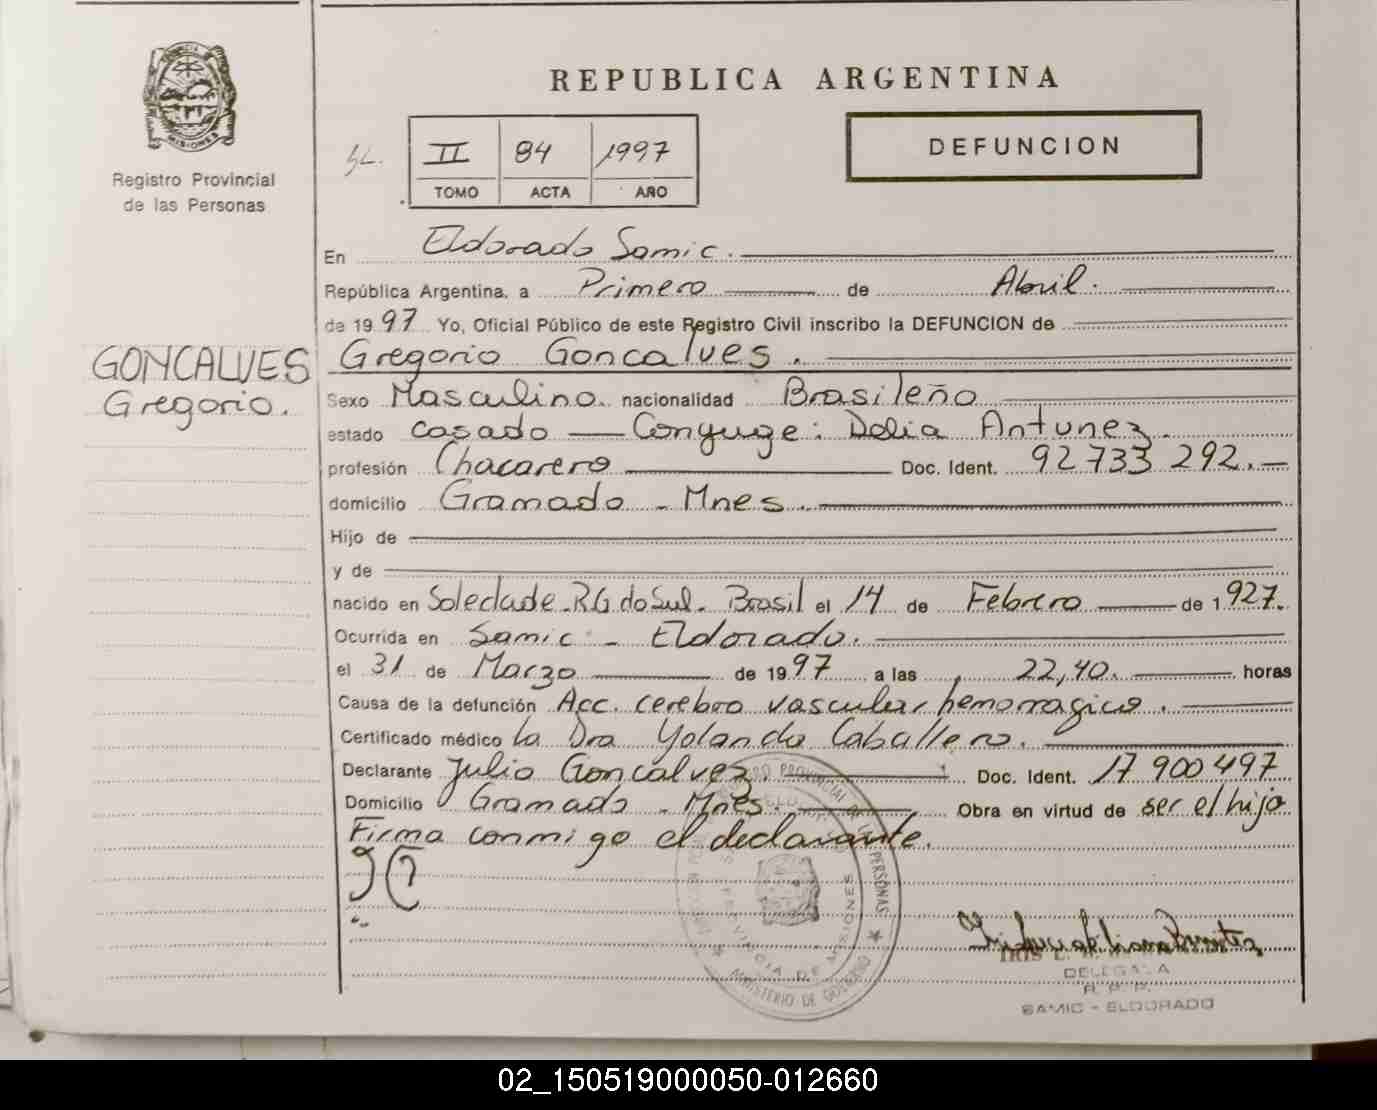 PROVINCIA DE
MISIONES
Registro Provincial
de las Personas
REPUBLICA ARGENTINA
II 84 1997
TOMO ACTA AÑO
DEFUNCION
En Eldorado Samic.
República Argentina, a Primero de Abril.
de 1997 Yo, Oficial Público de este Registro Civil inscribo la DEFUNCION de
GONCALVES Gregorio Goncalves.
Gregorio. Sexo Masculino. nacionalidad Brasileño
estado casado — Conyuge: Delia Antunez.
profesión Chacarero Doc. Ident. 92 733 292.—
domicilio Gramado - Mnes.
Hijo de
y de
nacido en Soledade-RG do Sul- Brasil el 14 de Febrero de 1927.
Ocurrida en Samic - Eldorado.
el 31 de Marzo de 1997 a las 22,40. horas
Causa de la defunción Acc. cerebro vascular hemorragico.
Certificado médico la Dra Yolanda Caballero.
Declarante Julio Goncalvez. Doc. Ident. 17 900 497
Domicilio Gramado - Mnes. Obra en virtud de ser el hijo
Firma conmigo el declarante.
REGISTRO PROVINCIAL DE LAS PERSONAS
PROVINCIA DE MISIONES
MINISTERIO DE GOBIERNO
DELEGADA
R. P. P.
SAMIC - ELDORADO
02_150519000050-012660